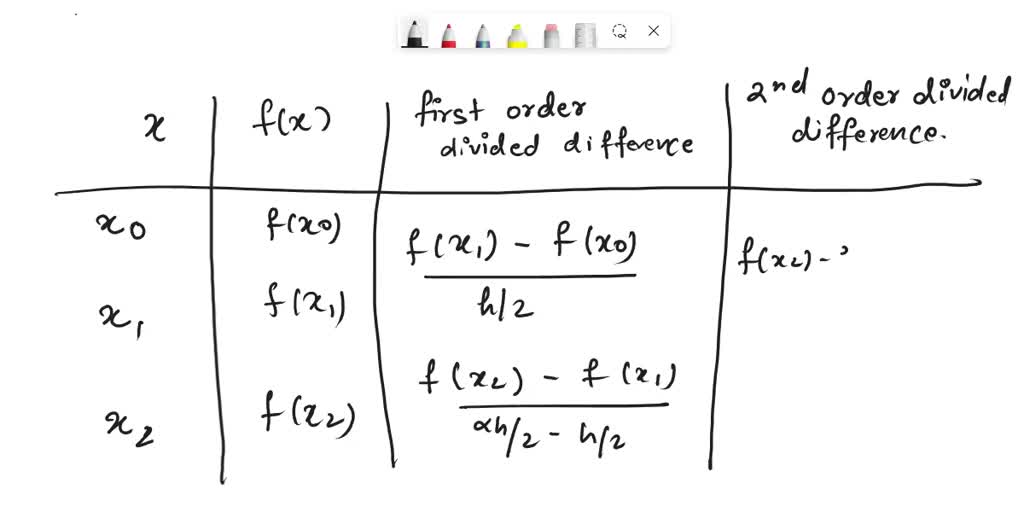 x f(x) first order divided difference 2nd order divided difference.
x0 f(x0) f(x1) - f(x0) f(x2) -
h/2
x1 f(x1)
x2 f(x2) f(x2) - f(x1)
αh/2 - h/2